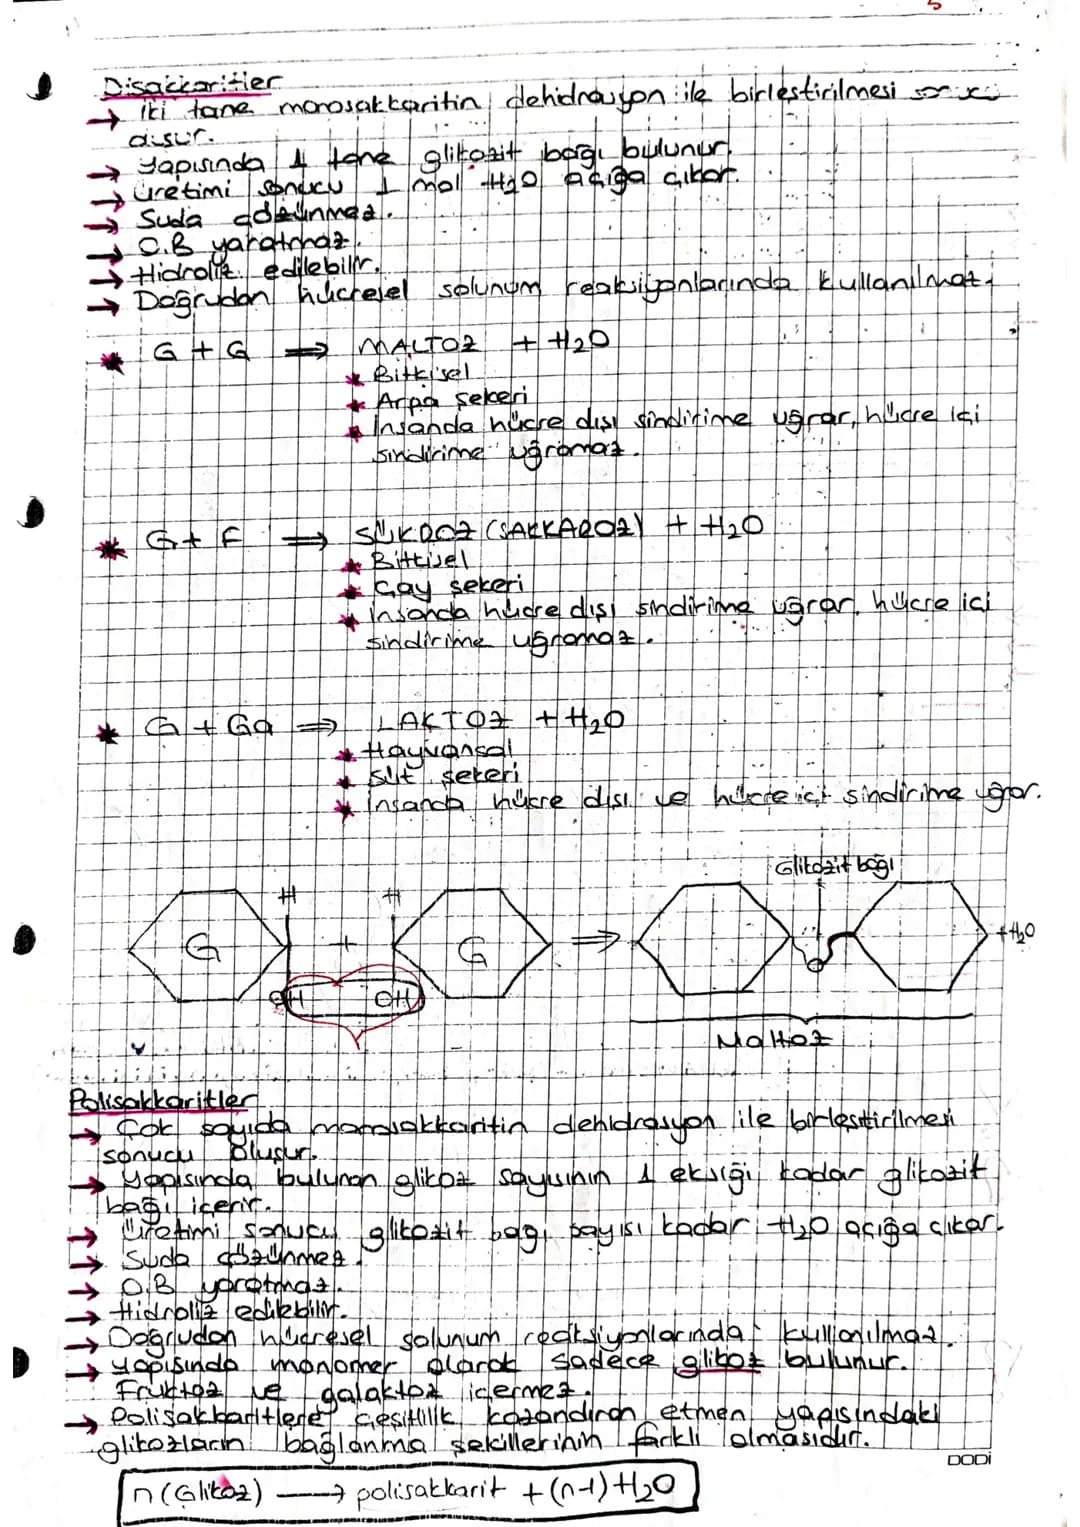 Disakkaritler
→ İki tane monosakkaritin dehidrasyon ile birleştirilmesi
→ Yapısında 1 tane glikozit bağı bulunur.
→ Üretimi sonucu 1 mol H2O açığa çıkar.
→ Suda çözünmez.
→ O.B yaratmaz.
→ Hidroliz edilebilir.
→ Doğrudan hücresel solunum reaksiyonlarında kullanılmaz.
* G + G ⇒ MALTOZ + H2O
* Bitkisel
* Arpa şekeri
* İnsanda hücre dışı sindirime uğrar, hücre içi
sindirime uğramaz.
* G + F ⇒ SÜKROZ (SAKKAROZ) + H2O
* Bitkisel
* Çay şekeri
* İnsanda hücre dışı sindirime uğrar, hücre içi
sindirime uğramaz.
* G + Ga ⇒ LAKTOZ + H2O
* Hayvansal
* Süt şekeri
* İnsanda hücre dışı ve hücre içi sindirime uğrar.
Glikozit bağı
H H
G + G ⇒ + H2O
OH OH O
Maltoz
Polisakkaritler
→ Çok sayıda monosakkaritin dehidrasyon ile birleştirilmesi
sonucu oluşur.
→ Yapısında bulunan glikoz sayısının 1 eksiği kadar glikozit
bağı içerir.
→ Üretimi sonucu glikozit bağı sayısı kadar H2O açığa çıkar.
→ Suda çözünmez.
→ O.B yaratmaz.
→ Hidroliz edilebilir.
→ Doğrudan hücresel solunum reaksiyonlarında kullanılmaz.
→ Yapısında monomer olarak sadece glikoz bulunur.
Fruktoz ve galaktoz içermez.
→ Polisakkaritlere çeşitlilik kazandıran etmen yapısındaki
glikozların bağlanma şekillerinin farklı olmasıdır.
DODi
n(Glikoz) → polisakkarit + (n-1) H2O